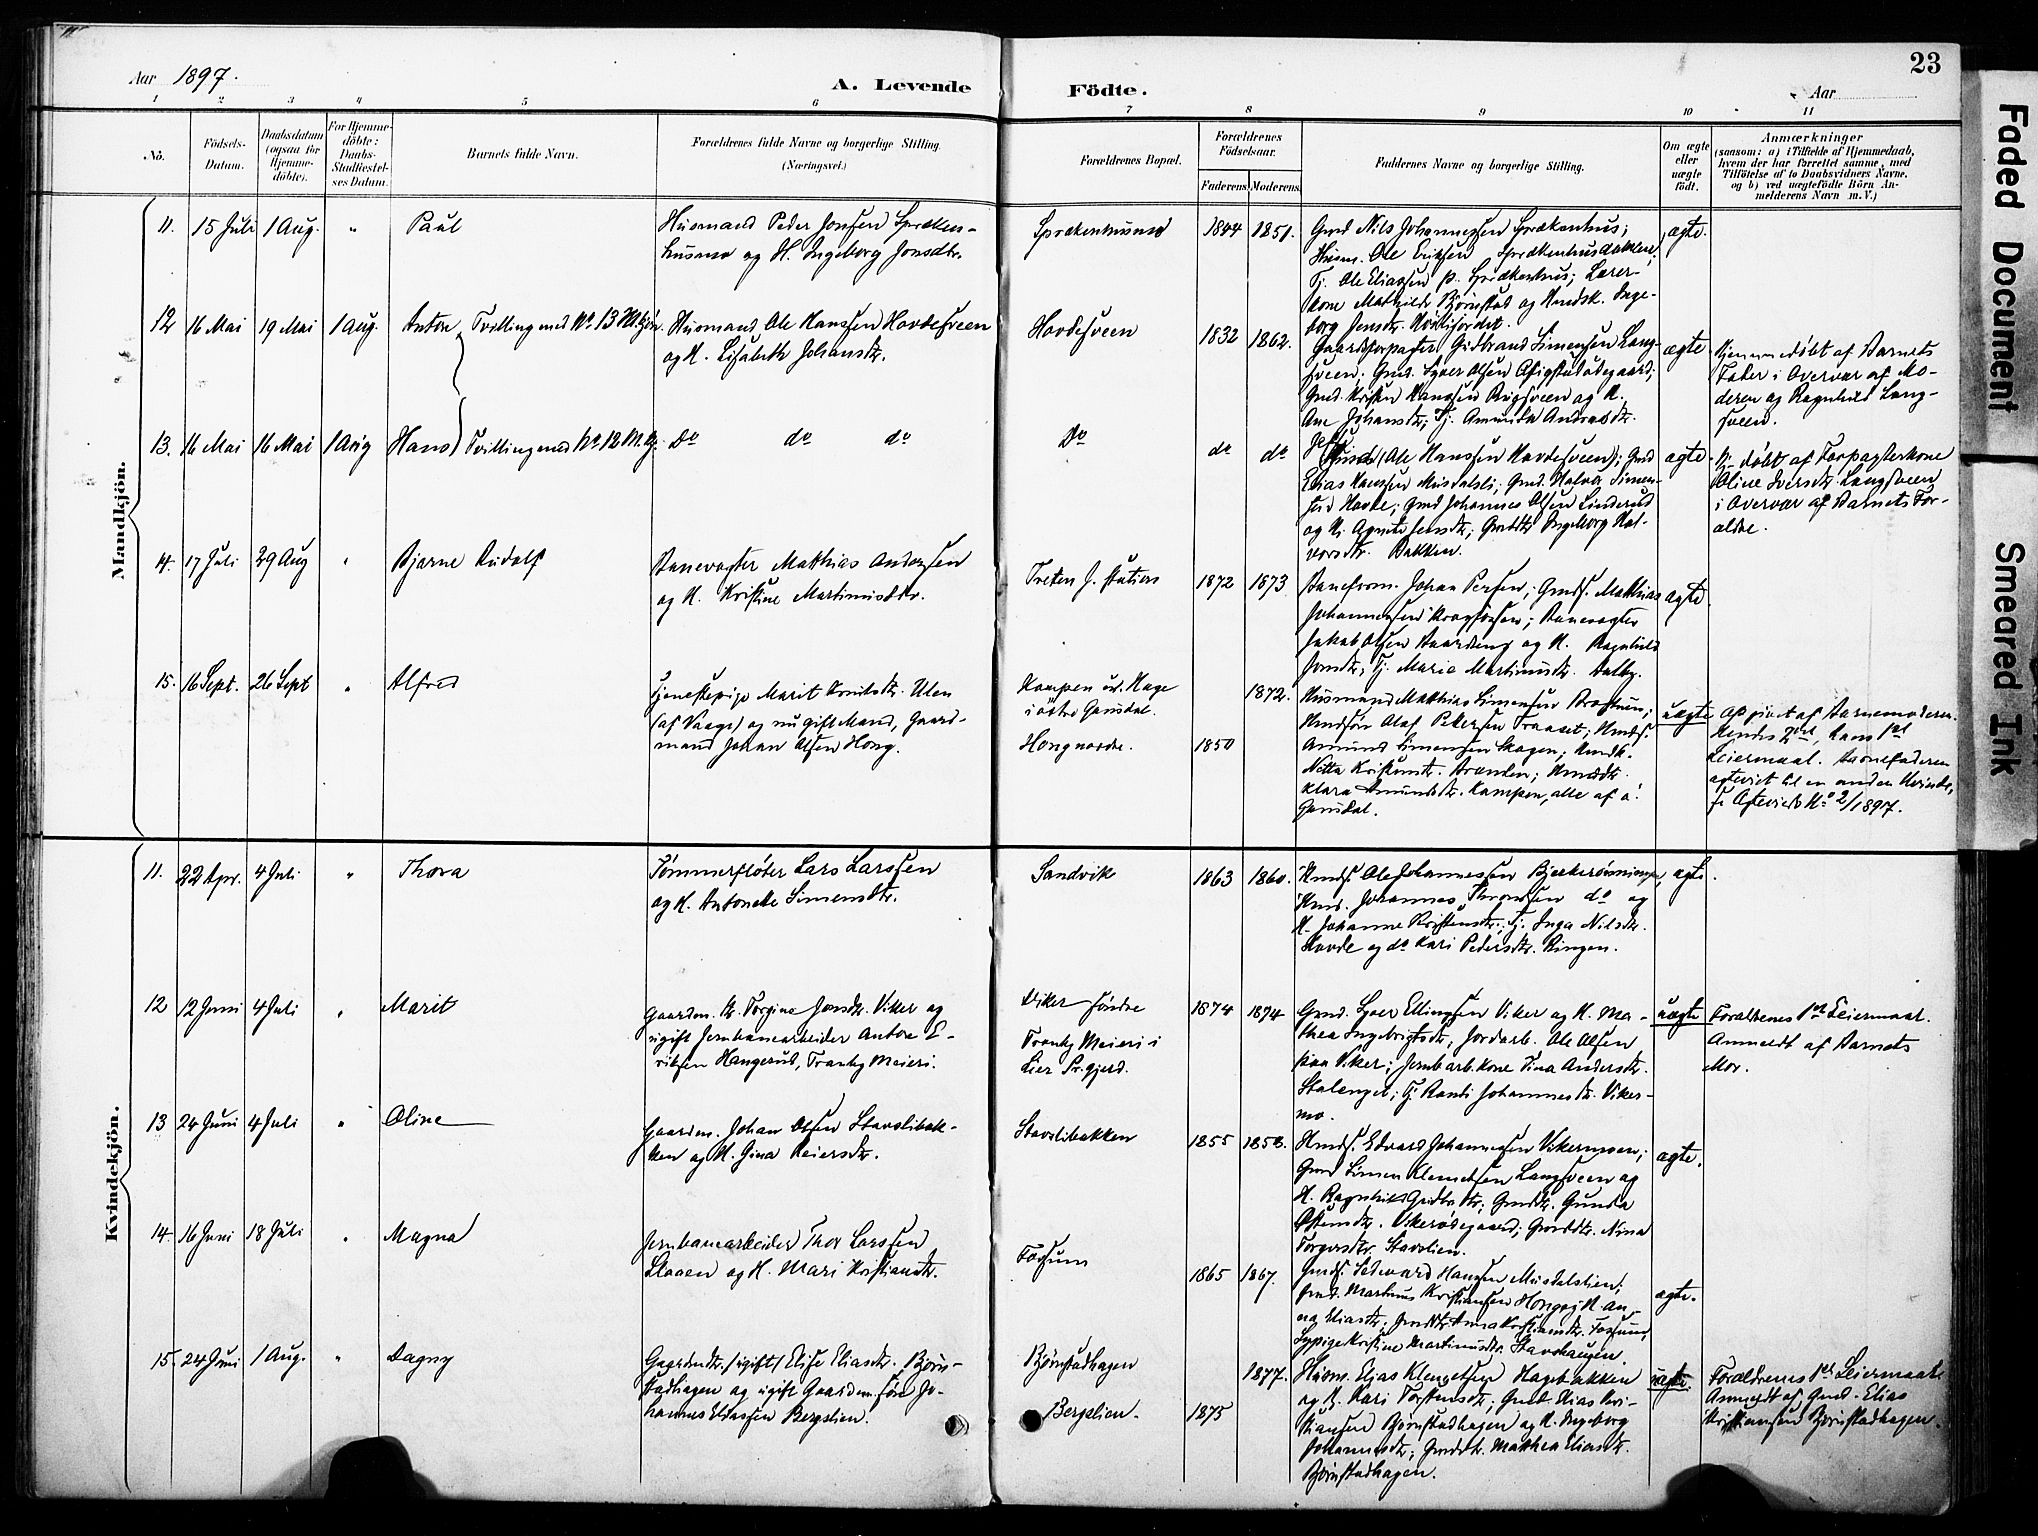 23
Aar 1897.
A. Levende Födte.
Aar
1 2 3 4 5 6 7 8 9 10 11
No.
Födsels-
Datum.
Daabsdatum
(ogsaa for
Hjemme-
döbte).
For Hjemme-
döbte:
Daabs-
Stadfæstel-
ses Datum.
Barnets fulde Navn.
Forældrenes fulde Navne og borgerlige Stilling.
(Næringsvei.)
Forældrenes Bopæl.
Forældrenes
Födselsaar.
Faderens. Moderens.
Faddernes Navne og borgerlige Stilling.
Om ægte
eller
uægte
födt.
Anmærkninger
(saasom: a) i Tilfælde af Hjemmedaab,
hvem der har forrettet samme, med
Tilföielse af to Daabsvidners Navne.
og b) ved uægtefödte Börn An-
melderens Navn m. V.)
Mandkjön.
11. 15 Juli 1 Aug. " Paul
Husmand Peder Jonsen Sprækens-
husmo og H. Ingeborg Jonsdtr.
1844 1851.
Gmd Nils Johannessen Sprækenhus;
Husm. Ole Eriksen Sprækenhusbakken;
Tj. Ole Eliassen p. Sprækenhus; Lærer-
kone Mathilde Bjørnstad og Inge-
borg Jensdtr.
ægte.
12 16 Mai 19 Mai 1 Aug. Anton Tvilling med No. 13 M.kjøn.
Husmand Ole Hanssen Hovdesveen
og H. Lisabeth Johansdtr.
Hovdesveen
1832 1862.
Gaardforpagter Gudbrand Simensen Lang-
sveen; Gmd. Syver Olsen
Gmd. Kristen Hanssen Rugsveen og H.
Ane Johansdtr; Tj. Amunda Andreasdtr.
ægte
Hjemmedøbt af Barnets
Fader i Overvær af Mo-
deren og Ragnhild Lang-
sveen.
13. 16 Mai 16 Mai 1 Aug Hans Tvilling med No. 12 M.kj.
Do do do
Do
do do
(Ole Hanssen Hovdesveen); Gmd
Elias Hanssen Musdalsli; Gmd. Halvor Simen-
sen Hovde; Gmd Johannes Olsen Linderud
og H. Agnete Jensdtr; Gmddtr Ingeborg Hal-
vorsdtr. Bakken.
ægte.
Hj. døbt af Forpagterkone
Oline Iversdtr. Langsveen
i Overvær af Barnets For-
ældre.
14. 17 Juli 29 Aug " Bjarne Rudolf
Banevogter Matthias Andersen
og H. Kristine Martinusdtr.
Tretten J. station
1872 1873
Baneform. Johan Persen; Gmds. Matthias
Johannessen Kragfossen; Banevogter
Jakob Olsen og H. Ragnhild
Jonsdtr; Tj. Marie Martinusdtr. Aalby.
ægte.
15. 16 Sept. 26 Sept " Alfred
Tjenestepige Marit Ulen
(af Vaage) og nu gift Mand, Gaard-
mand Johan Olsen Hong.
Kampen u. Hage
i østre Gausdal.
Hong nordre.
1872.
1850
Husmand Matthias Simensen Brostuen;
Hmdsøn Olaf Petersen; Hmds.
Amund Simensen Skogen; Hmdk.
Netta Kristensdtr. Branden; Hmddtr.
Klara Amundsdtr. Kampen, alle af ø.
Gausdal.
uægte
Opgivet af Barnemoderen.
Hendes 2det, hans 1ste
Leiermaal. Barnefaderen
ægteviet til en anden Kvinde,
se Ægteviede No 2/1897.
Kvindekjön.
11. 22 Apr. 4 Juli " Thora
Tømmerfløter Lars Larssen
og H. Antonette Simensdtr.
Sandvik
1863 1860.
Hmds. Ole Johannessen Bjerkerønningen,
Hmd. Johannes Thronsen do og
H. Johanne Kristensdtr; Tj. Inga Nilsdtr.
Hovde og do Kari Pedersdtr. Ringen.
ægte.
12 12 Juni 4 Juli " Marit
Gaardm. D. Torgine Jonsdtr. Viker og
ugift Jernbanearbeider Anton E-
riksen Haugerud, Tranby Meieri.
Viker søndre
Tranby Meieri i
Lier Prgjeld.
1874 1874
Gmd. Syver Ellingsen Viker og H. Ma-
thea Ingebrigtsdtr, Jordarb. Ole Olsen
paa Viker; Jernb.arb.kone Tina Andersdtr.
Stalenget; Tj Randi Johannesdtr. Viker-
mo.
uægte
Forældrenes 1ste Leiermaal.
Anmeldt af Barnets
Mor.
13 24 Juni 4 Juli " Oline
Gaardm. Johan Olsen Stavslibak-
ken og H. Gina Reiersdtr.
Stavslibakken
1855 1858.
Hmds. Edvard Johannessen Vikermoen;
Gmd Simen Klemetsen Langsveen og
H. Ragnhild Gudbr.dtr; Gmddtr. Gunda
Vikerødegaard; Gmddtr. Nina
Torgersdtr. Stavslien.
ægte.
14. 16 Juni 18 Juli " Magna
Jernbanearbeider Thor Larssen
Slaaen og H. Mari Kristiansdtr.
Fossum
1865 1867.
Gmds. Edward Hansen Musdalslien;
Gmd. Martinus Kristiansen Hong og H. An-
na Eliasdtr; Gmddtr Anna Kristiansdtr. Fossum,
Sypige Kristine Martinusdtr. Stavshaugen.
ægte.
15. 24 Juni 1 Aug. " Dagny
Gaarddtr. (ugift) Elise Eliasdtr. Bjørn-
stadhagen og ugift Gaardm. søn Jo-
hannes Eliassen Bergslien.
Bjørnstadhagen
Bergslien.
1877.
1875
Husm. Elias Klemetsen Hagebakken
og H. Kari Torstensdtr; Gmd. Elias Kri-
stiansen Bjørnstadhagen og H. Ingeborg
Johannesdtr; Gmddtr. Mathea Eliasdtr.
Bjørnstadhagen.
uægte.
Forældrenes 1ste Leiermaal
Anmeldt af Gmd. Elias
Kristiansen Bjørnstadhagen.
Faded Document
Smeared Ink